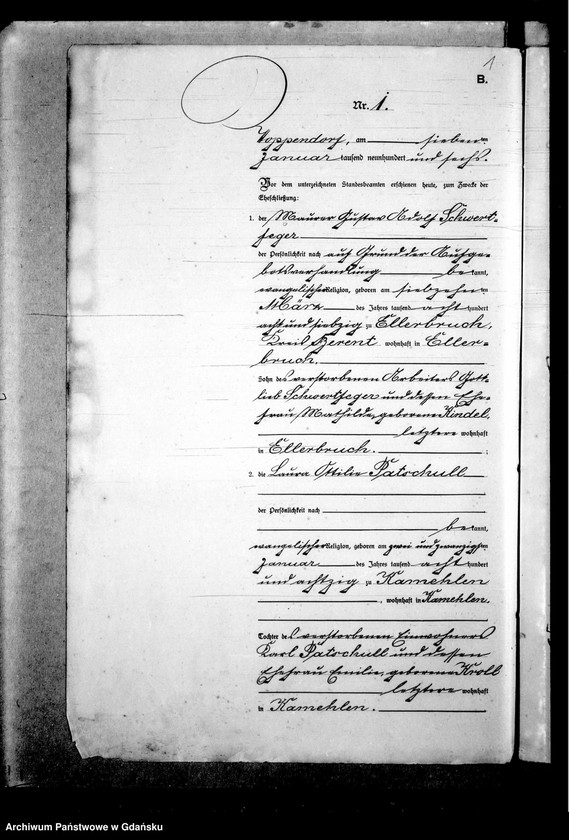 1
B.
Nr. 1.
Hoppendorf, am sieben ten
Januar tausend neunhundert und sechs.
Vor dem unterzeichneten Standesbeamten erschienen heute, zum Zwecke der
Eheschließung:
1. der Maurer Gustav Adolf Schwert-
feger
der Persönlichkeit nach auf Grund der Aufge-
botsverhandlung bekannt,
evangelischer Religion, geboren am siebzehn ten
März des Jahres tausend acht hundert
acht und siebzig zu Ellerbruch,
Kreis Berent wohnhaft in Eller-
bruch.
Sohn des verstorbenen Arbeiters Gott-
lieb Schwertfeger und dessen Ehe-
frau Mathilde, geborene Kindel,
letztere wohnhaft
in Ellerbruch. ;
2. die Laura Ottilie Patschull
der Persönlichkeit nach
bekannt,
evangelischer Religion, geboren am zwei und zwanzigsten
Januar des Jahres tausend acht hundert
und achtzig zu Kamehlen
, wohnhaft in Kamehlen,
Tochter des verstorbenen Einwohners
Karl Patschull und dessen
Ehefrau Emilie, geborene Kroll
letztere wohnhaft
in Kamehlen.
Archiwum Państwowe w Gdańsku